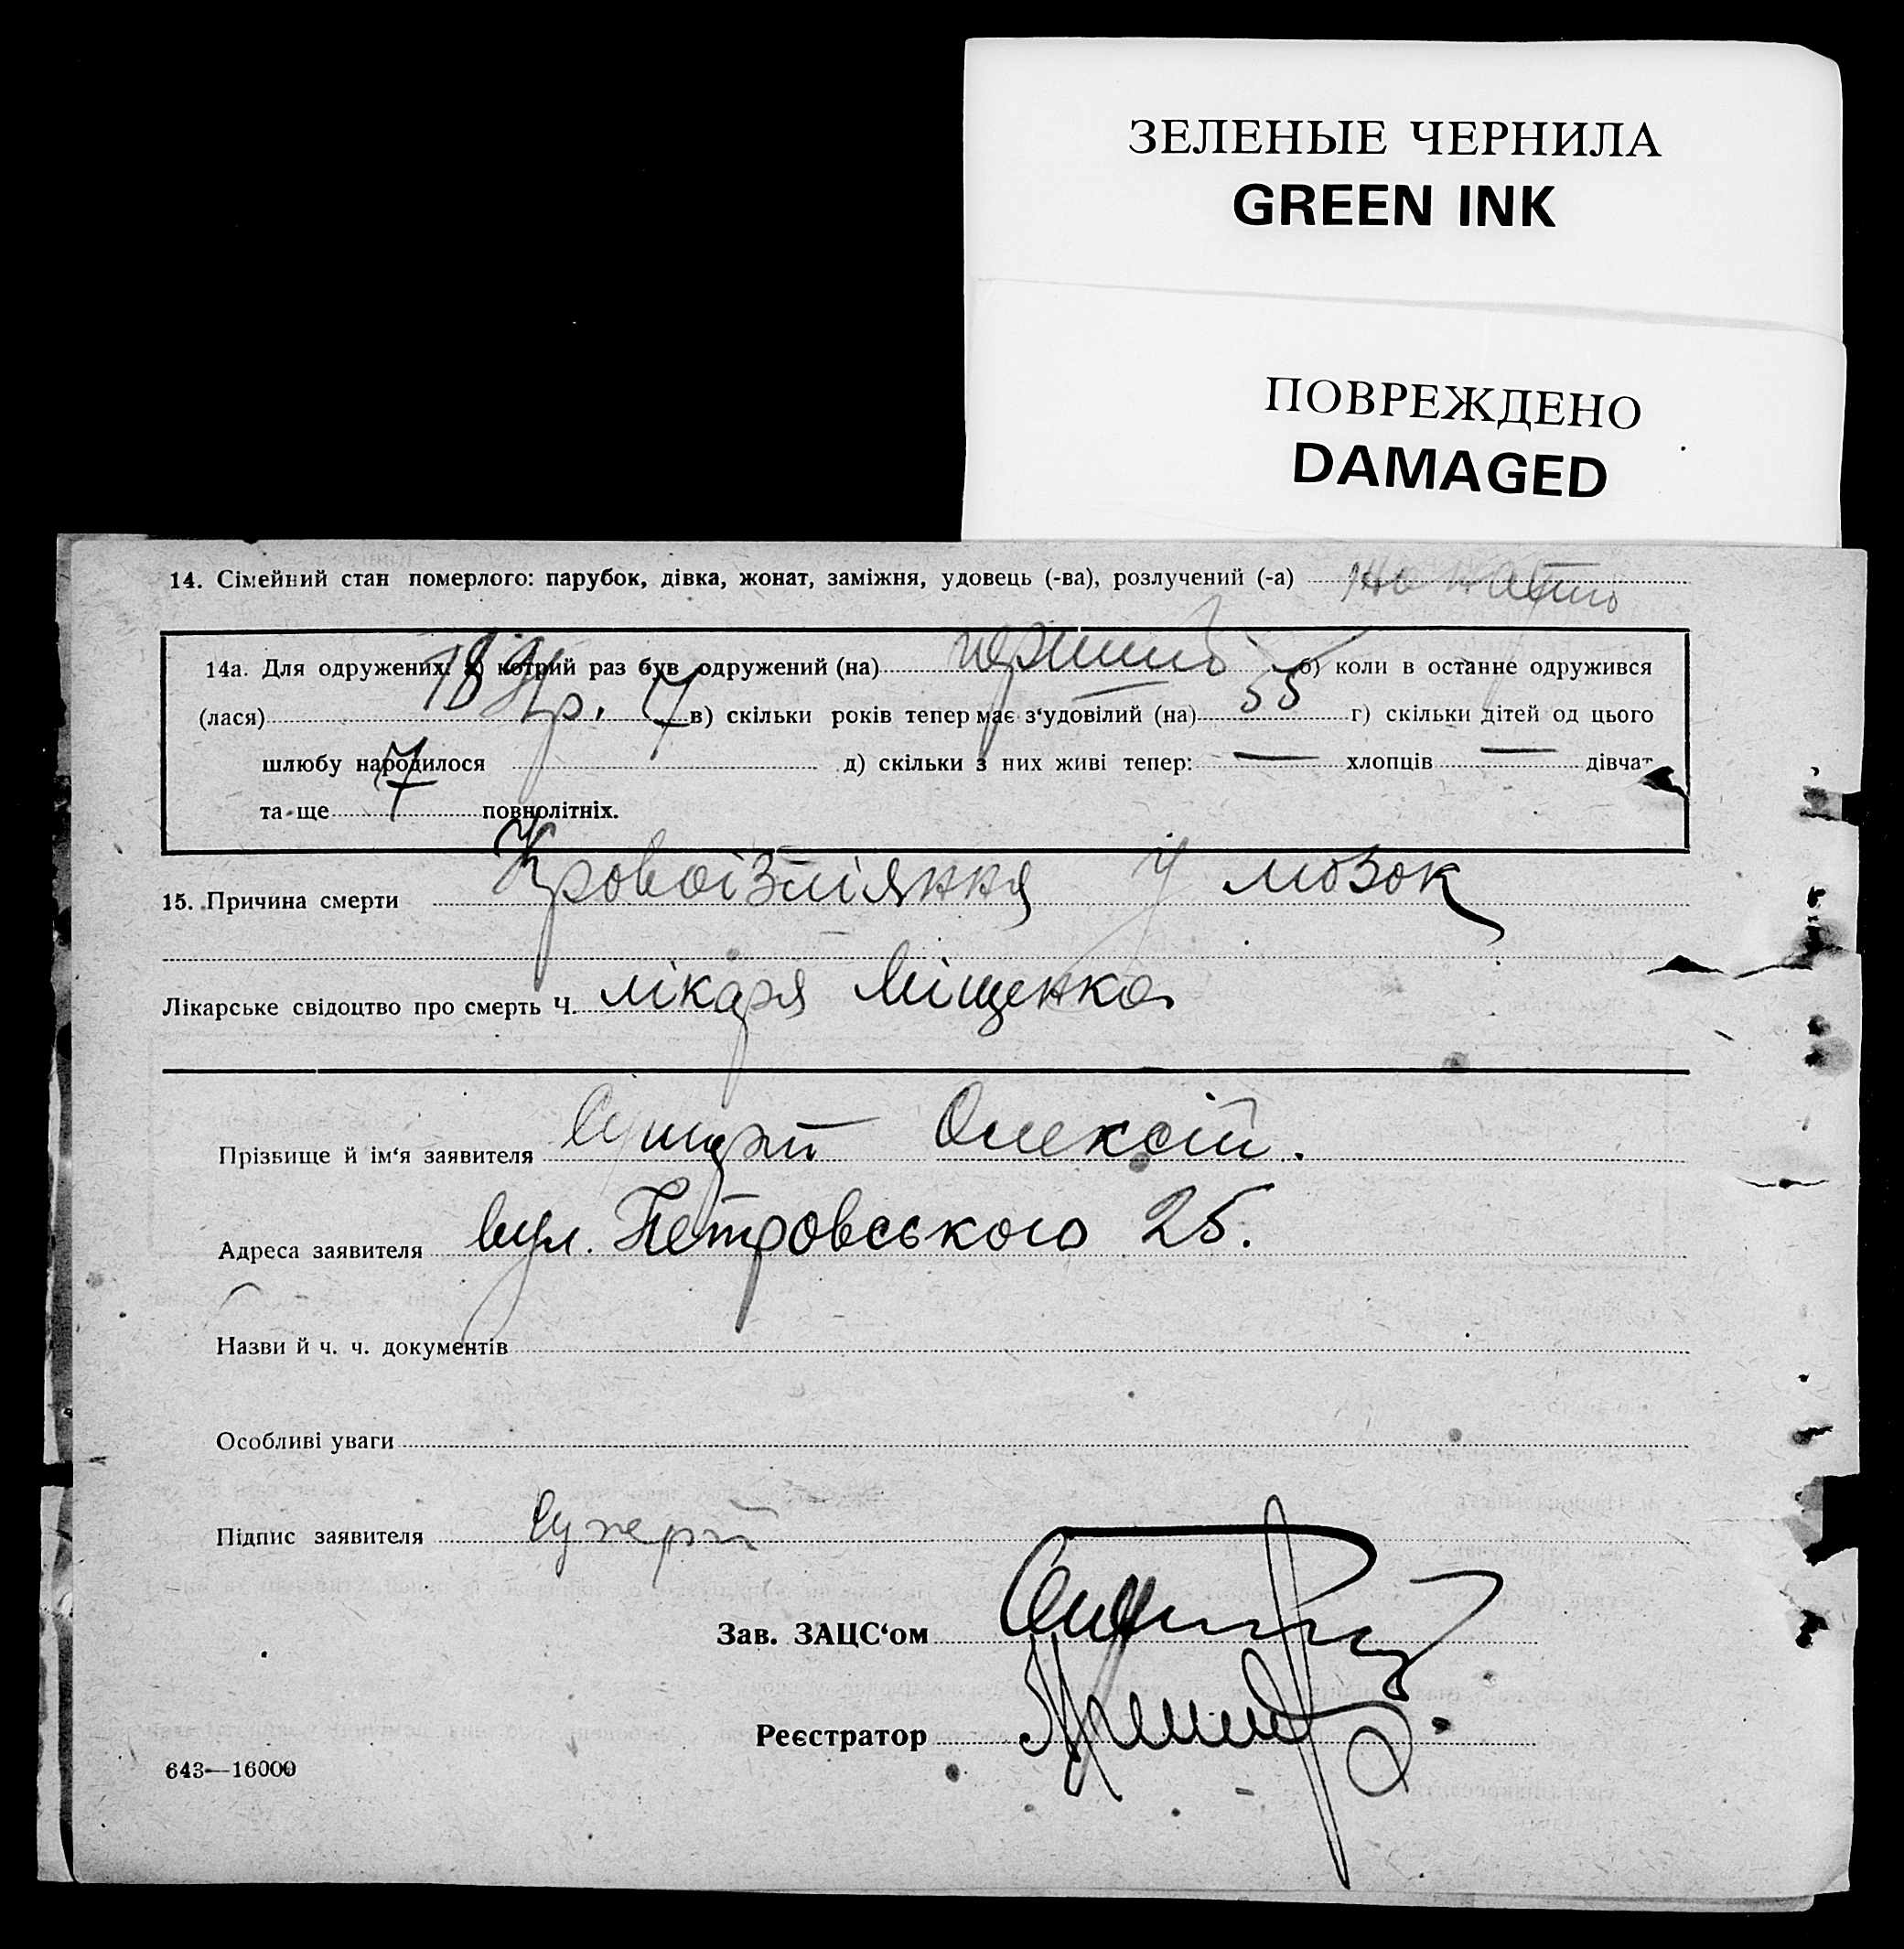 ЗЕЛЕНЫЕ ЧЕРНИЛА
GREEN INK
ПОВРЕЖДЕНО
DAMAGED
14. Сімейний стан померлого: парубок, дівка, жонат, заміжня, удовець (-ва), розлучений (-а)
14а. Для одружених: а) котрий раз був одружений (на) б) коли в останнє одружився
(лася) р. в) скільки років тепер має з‘удовілий (на) 55 г) скільки дітей од цього
шлюбу народилося 7 д) скільки з них живі тепер: — хлопців — дівчат
та ще 7 повнолітніх.
15. Причина смерти Кровоізліяння у мозок
Лікарське свідоцтво про смерть Ч. лікаря Міщенка
Прізвище й ім‘я заявителя Олексій.
Адреса заявителя вул. Петровського 25.
Назви й ч. ч. документів
Особливі уваги
Підпис заявителя
Зав. ЗАЦС‘ом
Реєстратор
643—16000